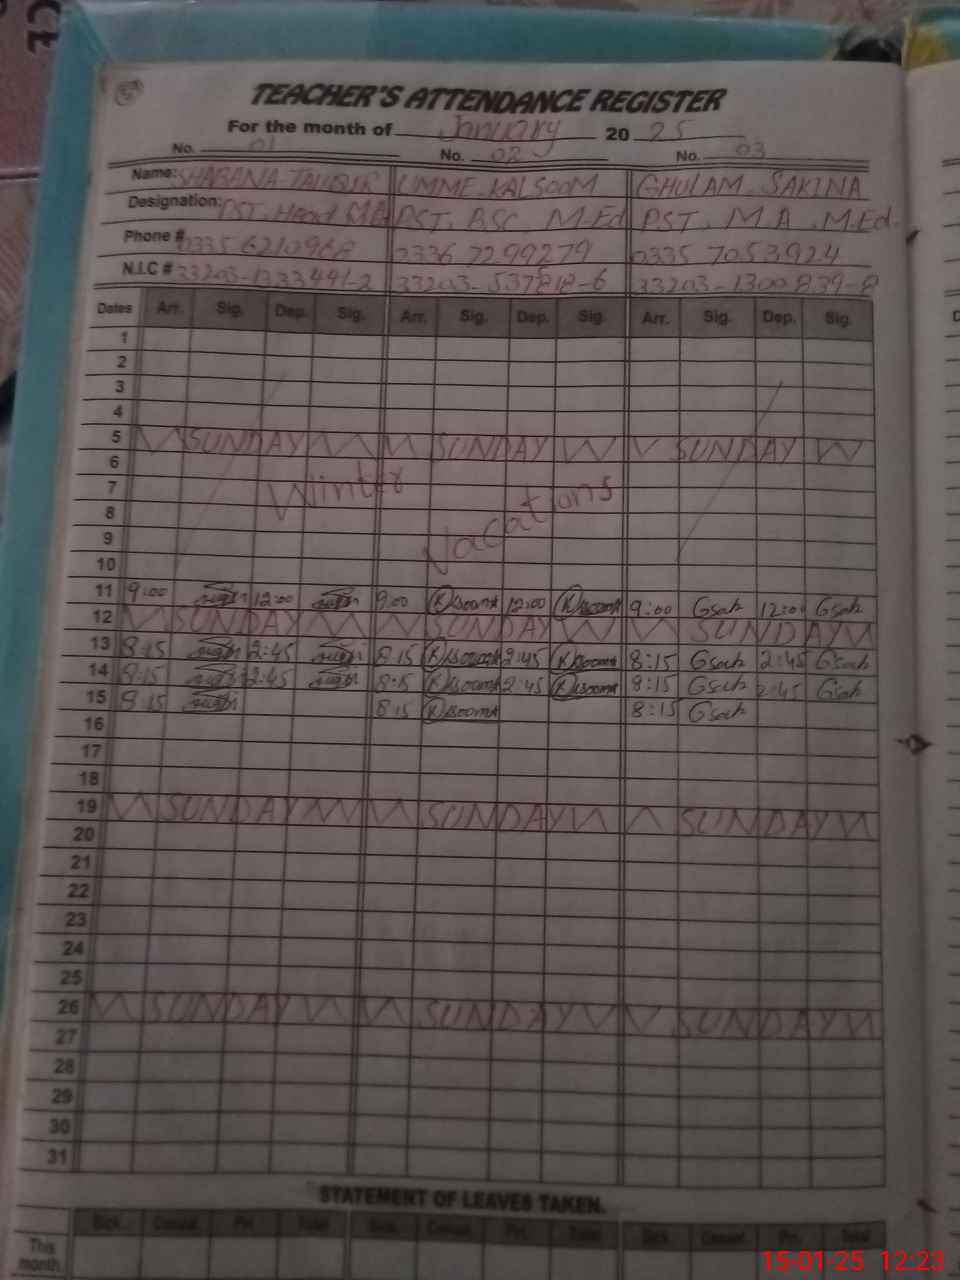 TEACHER'S ATTENDANCE REGISTER
For the month of January 20 25
No. 01 No. 02 No. 03
Name: SHABANA UMME KALSOOM GHULAM SAKINA
Designation: PST, Head PST, BSC, M.Ed PST, M.A, M.Ed.
Phone # 0335 6210968 0336 7299279 0335 7053924
N.I.C #
Dates Arr. Sig. Dep. Sig. Arr. Sig. Dep. Sig. Arr. Sig. Dep. Sig.
1
2
3
4
5 SUNDAY SUNDAY SUNDAY
6
7 Winter
8 Vacations
9
10
11 9:00 12:00 9:00 12:00 9:00 Gsah 12:00 Gsah
12 SUNDAY SUNDAY SUNDAY
13 8:15 2:45 8:15 2:45 8:15 Gsah 2:45 Gsah
14 8:15 2:45 8:15 2:45 8:15 Gsah 2:45 Gsah
15 8:15 8:15 8:15 Gsah
16
17
18
19 SUNDAY SUNDAY SUNDAY
20
21
22
23
24
25
26 SUNDAY SUNDAY SUNDAY
27
28
29
30
31
STATEMENT OF LEAVES TAKEN.
Sick. Casual. Pri. Total Sick. Casual. Pri. Total Sick. Casual. Pri. Total
This
month.
15-01-25 12:23